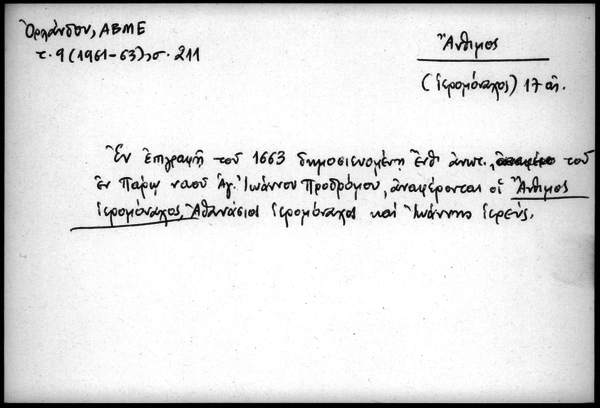 Ὀρλάνδου, ΑΒΜΕ
τ. 9 (1961-63), σ. 211
Ἄνθιμος
(ἱερομόναχος) 17 αἰ.
Ἐν ἐπιγραφῇ τοῦ 1663 δημοσιευομένῃ ἔνθ' ἀνωτ., τοῦ
ἐν Πάρῳ ναοῦ Ἁγ. Ἰωάννου Προδρόμου, ἀναφέρονται οἱ Ἄνθιμος
ἱερομόναχος, Ἀθανάσιος ἱερομόναχος καὶ Ἰωάννης ἱερεύς.